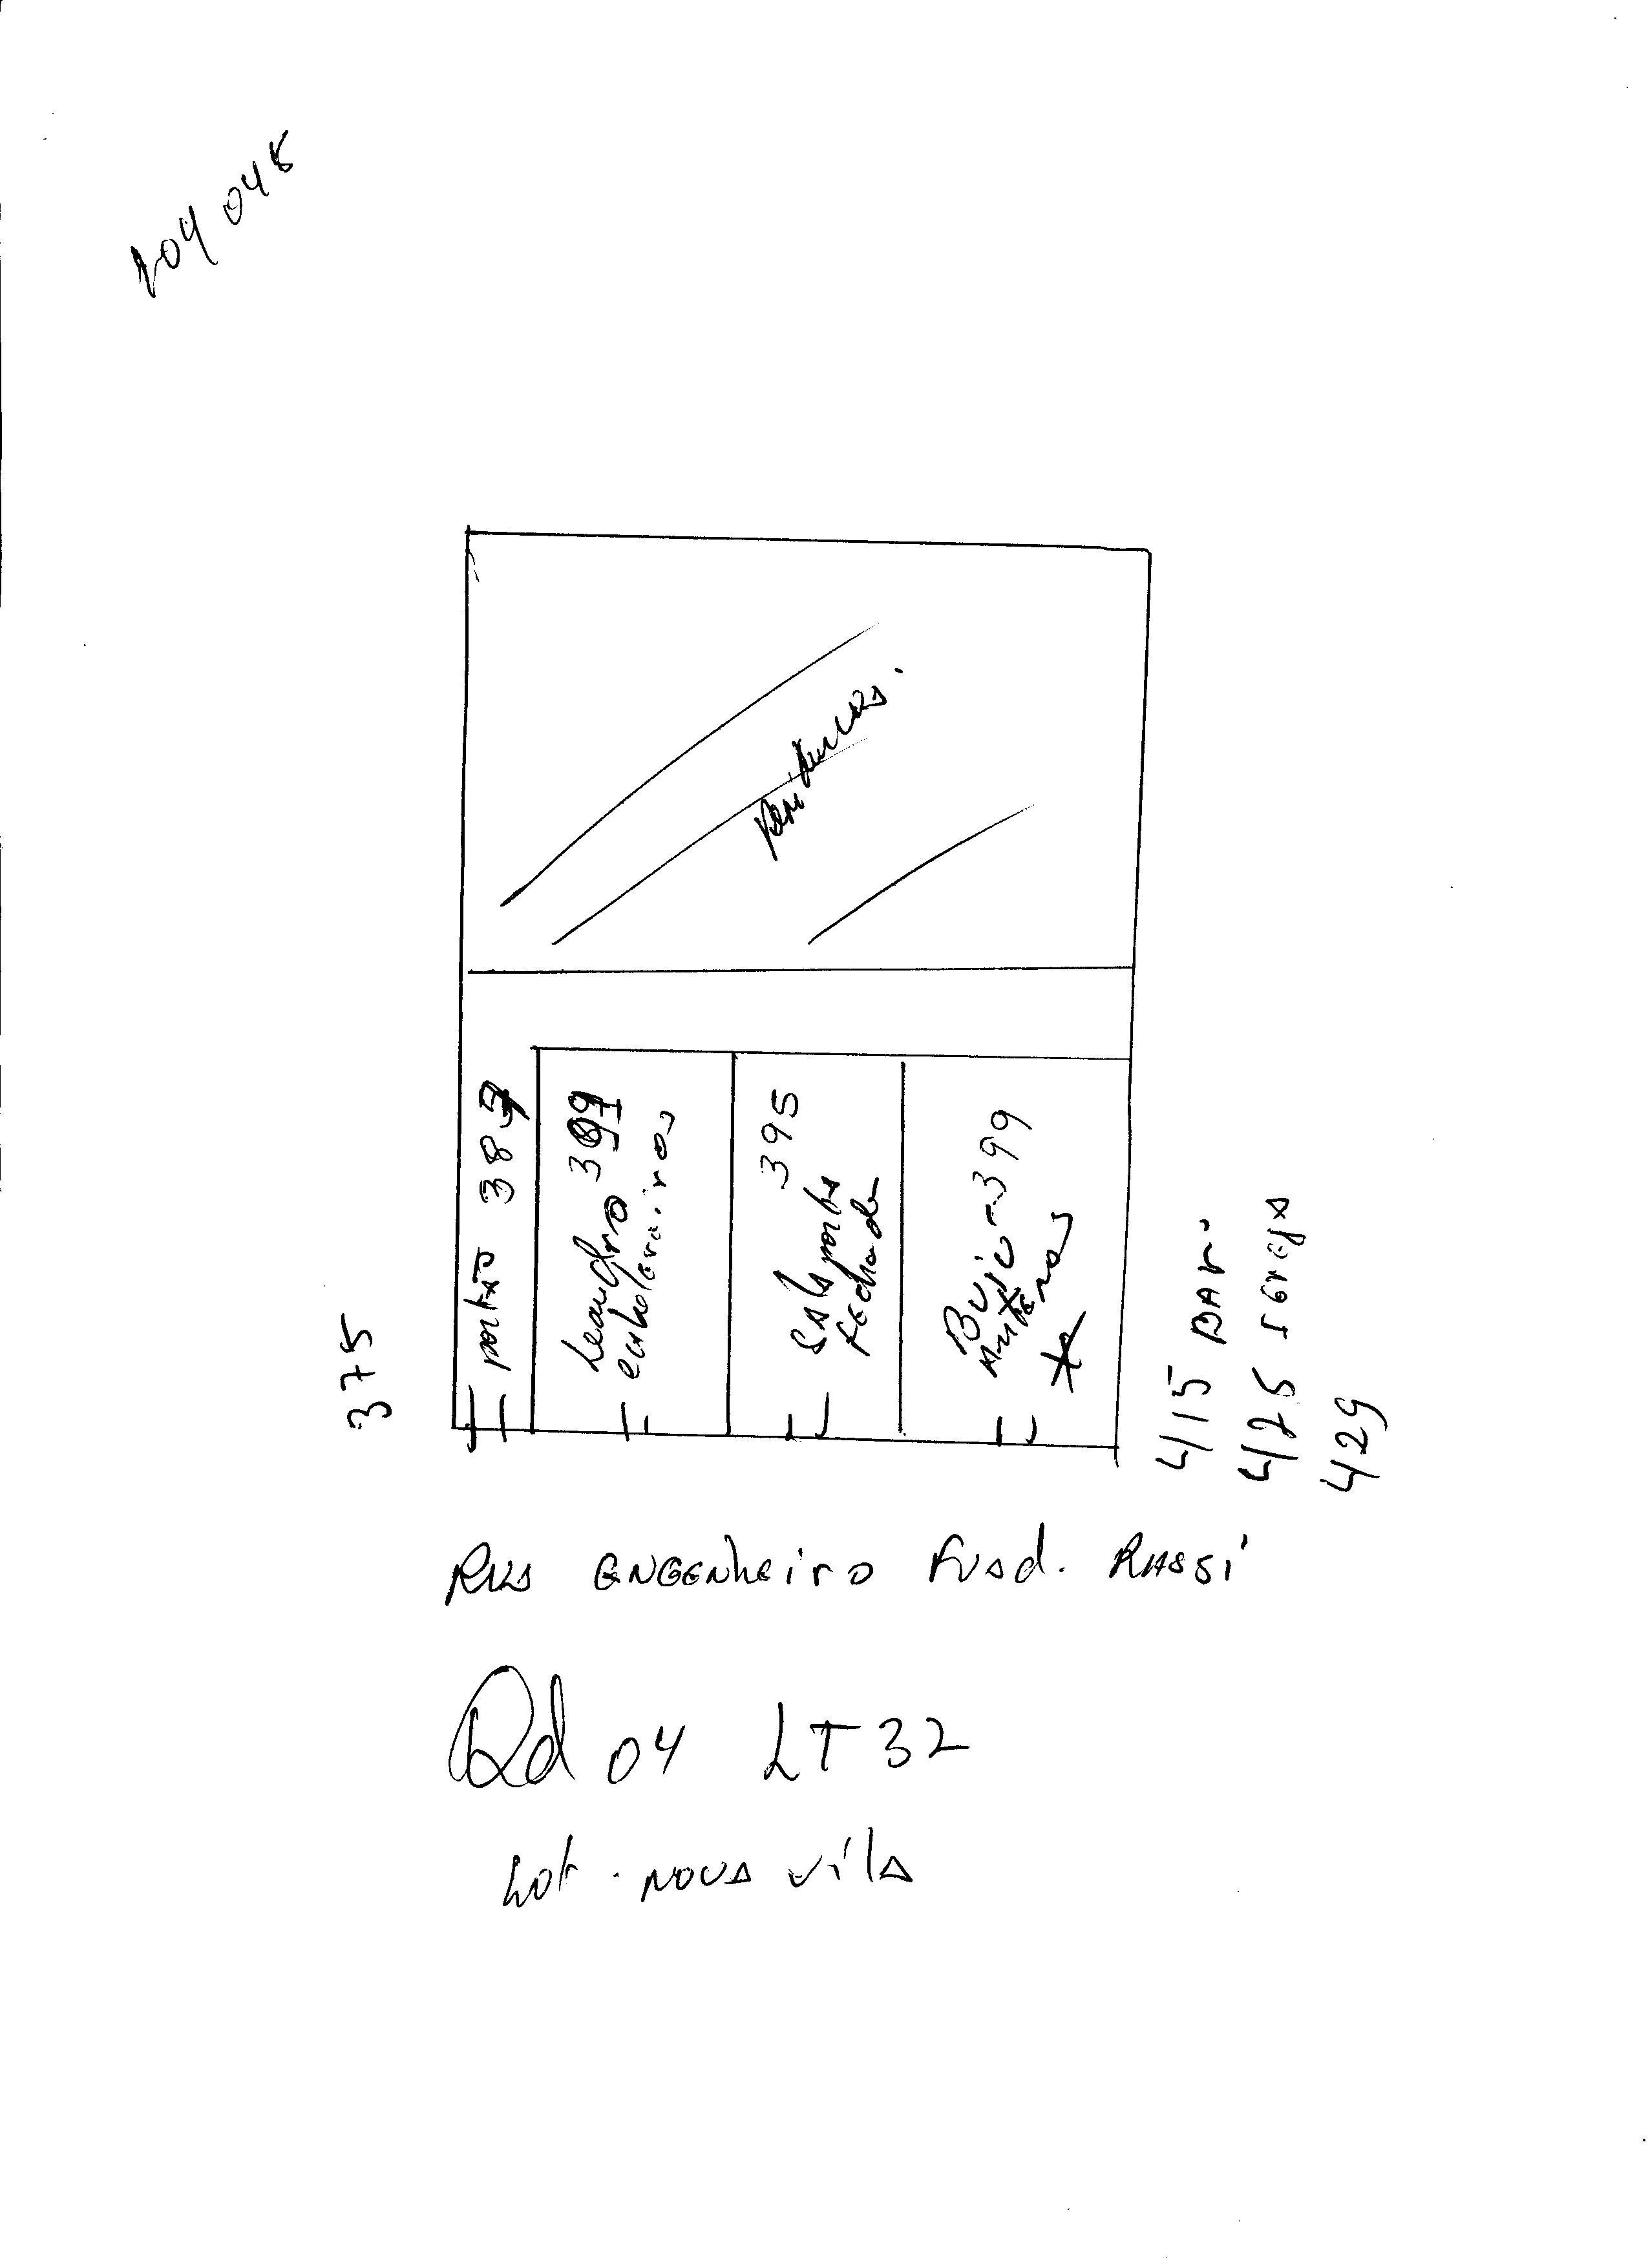 104 048
375
portão 387
Leandro 391
cabeleireiros
Sala porta 395
fechada
Bujo - 399
★
415 BAR
425 IGREJA
429
RUA ENGENHEIRO FUAD. RASSI
Qd 04 LT 32
Lot. NOVA VILA